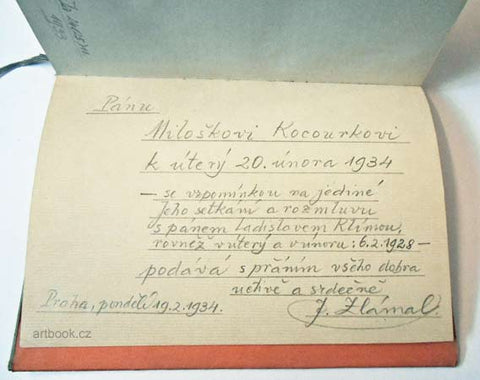 1933
Pánu
Miloškovi Kocourkovi
k úterý 20. února 1934
— se vzpomínkou na jediné
Jeho setkání a rozmluvu
s pánem Ladislavem Klímou,
rovněž v úterý a v únoru: 6.2.1928 —
podává s přáním všeho dobra
uctivě a srdečně
Praha, pondělí 19.2.1934.
J. Zlámal.
artbook.cz